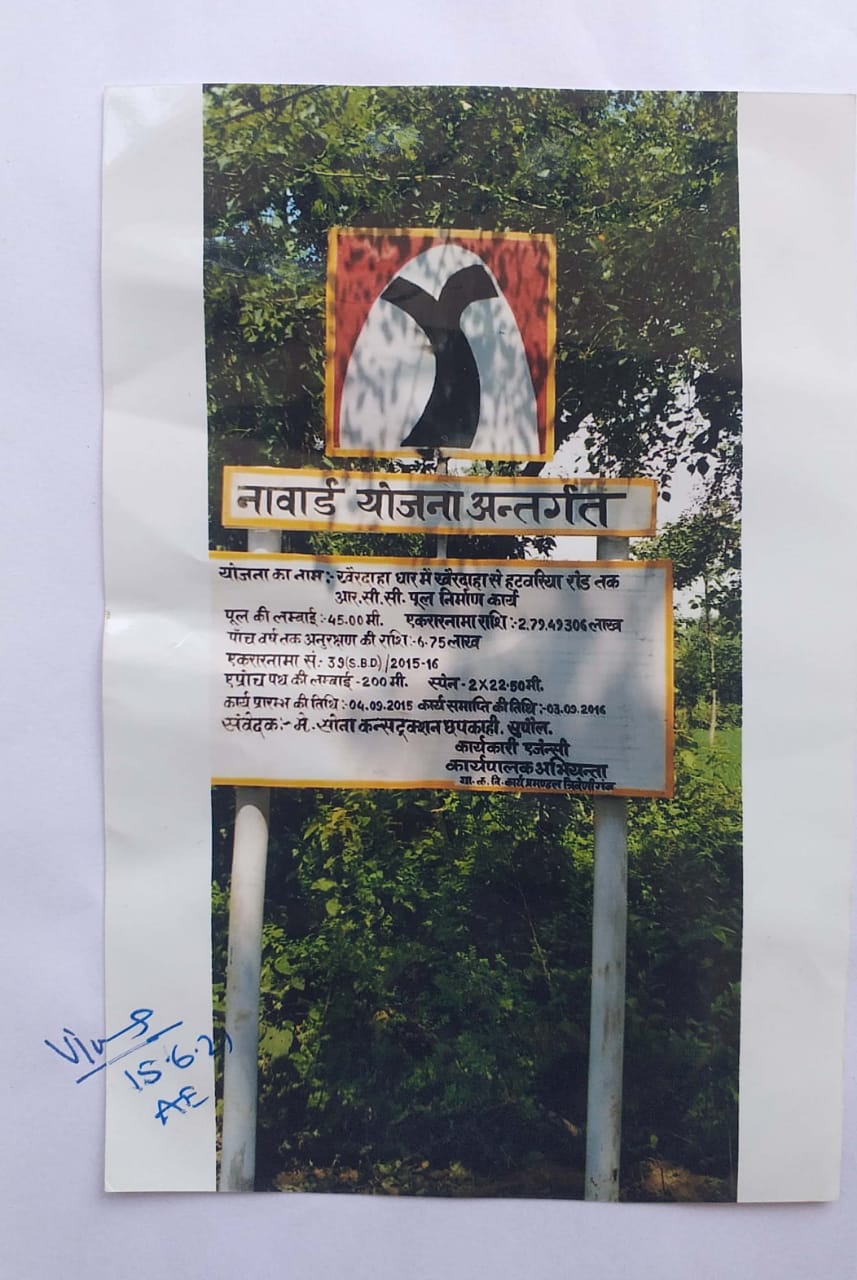 नावार्ड योजना अन्तर्गत
योजना का नाम:- खैरदाहा धार में खैरदाहा से हटवरिया रोड तक
आर.सी.सी. पूल निर्माण कार्य
पूल की लम्बाई:-45.00मी. एकरारनामा राशि:-2.79.49306लाख
पाँच वर्ष तक अनुरक्षण की राशि:-6.75लाख
एकरारनामा सं.:- 39(S.B.D)/2015-16
एप्रोच पथ की लम्बाई-200मी. स्पेन-2X22.50मी.
कार्य प्रारम्भ की तिथि:-04.09.2015 कार्य समाप्ति की तिथि:-03.09.2016
संवेदक:- मे. सोना कन्सट्रक्शन छपकाही, सुपौल.
कार्यकारी एजेन्सी
कार्यपालक अभियन्ता
ग्रा. का. वि. कार्य प्रमण्डल त्रिवेणीगंज
15.6.21
AE